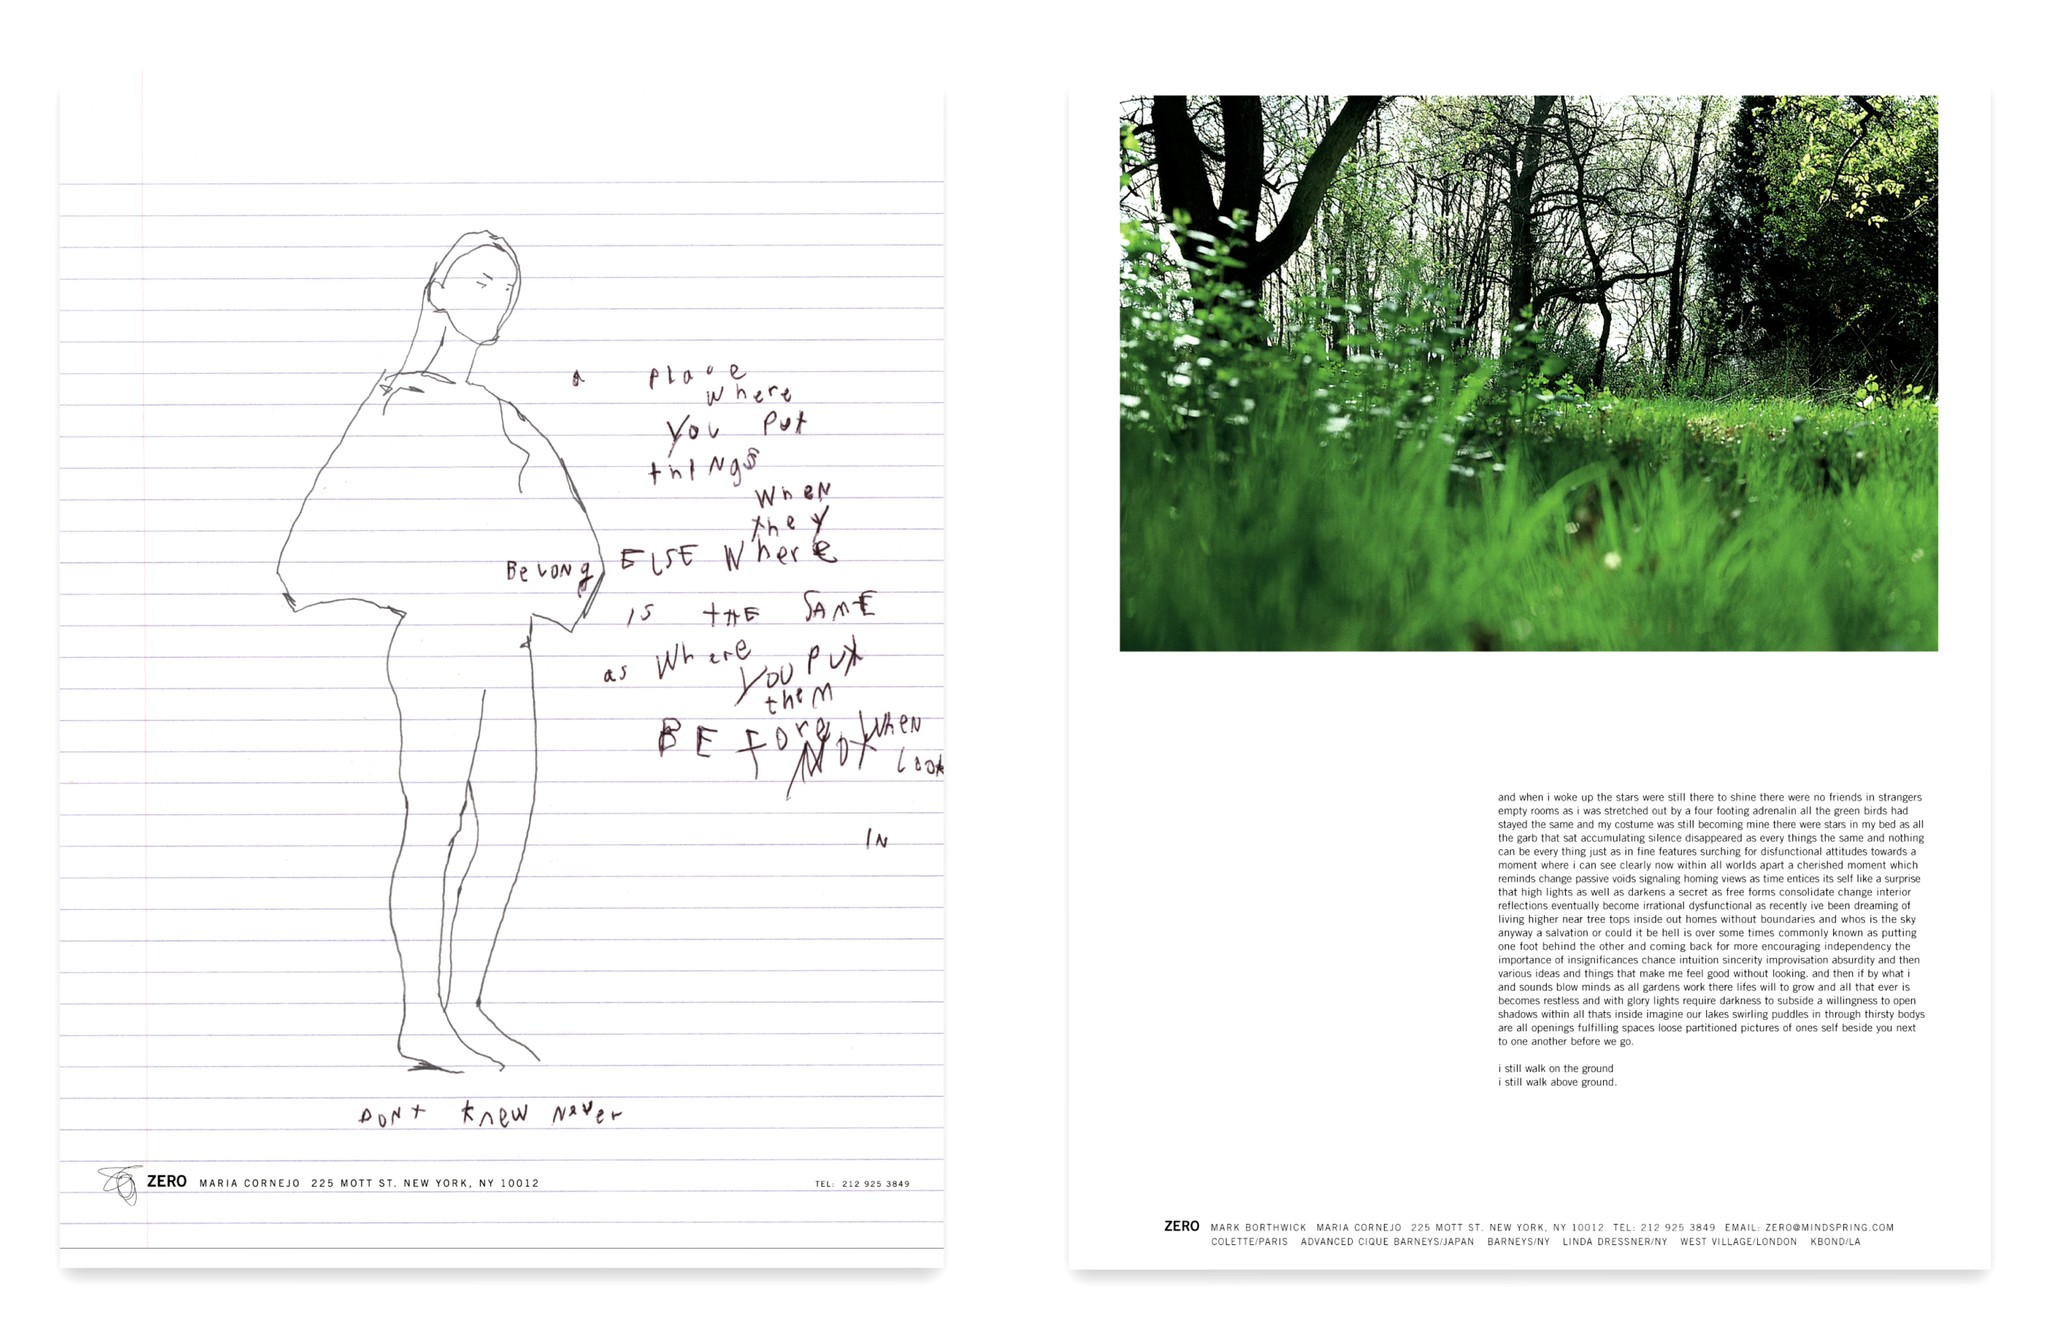 a place
where
you put
things
when
they
Belong ELSE where
is tHE SAmE
as where
you put
them
BEfore Not when
look
IN
DoNt knew never
ZERO MARIA CORNEJO 225 MOTT ST. NEW YORK, NY 10012 TEL: 212 925 3849
and when i woke up the stars were still there to shine there were no friends in strangers
empty rooms as i was stretched out by a four footing adrenalin all the green birds had
stayed the same and my costume was still becoming mine there were stars in my bed as all
the garb that sat accumulating silence disappeared as every things the same and nothing
can be every thing just as in fine features surching for disfunctional attitudes towards a
moment where i can see clearly now within all worlds apart a cherished moment which
reminds change passive voids signaling homing views as time entices its self like a surprise
that high lights as well as darkens a secret as free forms consolidate change interior
reflections eventually become irrational dysfunctional as recently ive been dreaming of
living higher near tree tops inside out homes without boundaries and whos is the sky
anyway a salvation or could it be hell is over some times commonly known as putting
one foot behind the other and coming back for more encouraging independency the
importance of insignificances chance intuition sincerity improvisation absurdity and then
various ideas and things that make me feel good without looking. and then if by what i
and sounds blow minds as all gardens work there lifes will to grow and all that ever is
becomes restless and with glory lights require darkness to subside a willingness to open
shadows within all thats inside imagine our lakes swirling puddles in through thirsty bodys
are all openings fulfilling spaces loose partitioned pictures of ones self beside you next
to one another before we go.
i still walk on the ground
i still walk above ground.
ZERO MARK BORTHWICK MARIA CORNEJO 225 MOTT ST. NEW YORK, NY 10012 TEL: 212 925 3849 EMAIL: ZERO@MINDSPRING.COM
COLETTE/PARIS ADVANCED CIQUE BARNEYS/JAPAN BARNEYS/NY LINDA DRESSNER/NY WEST VILLAGE/LONDON KBOND/LA